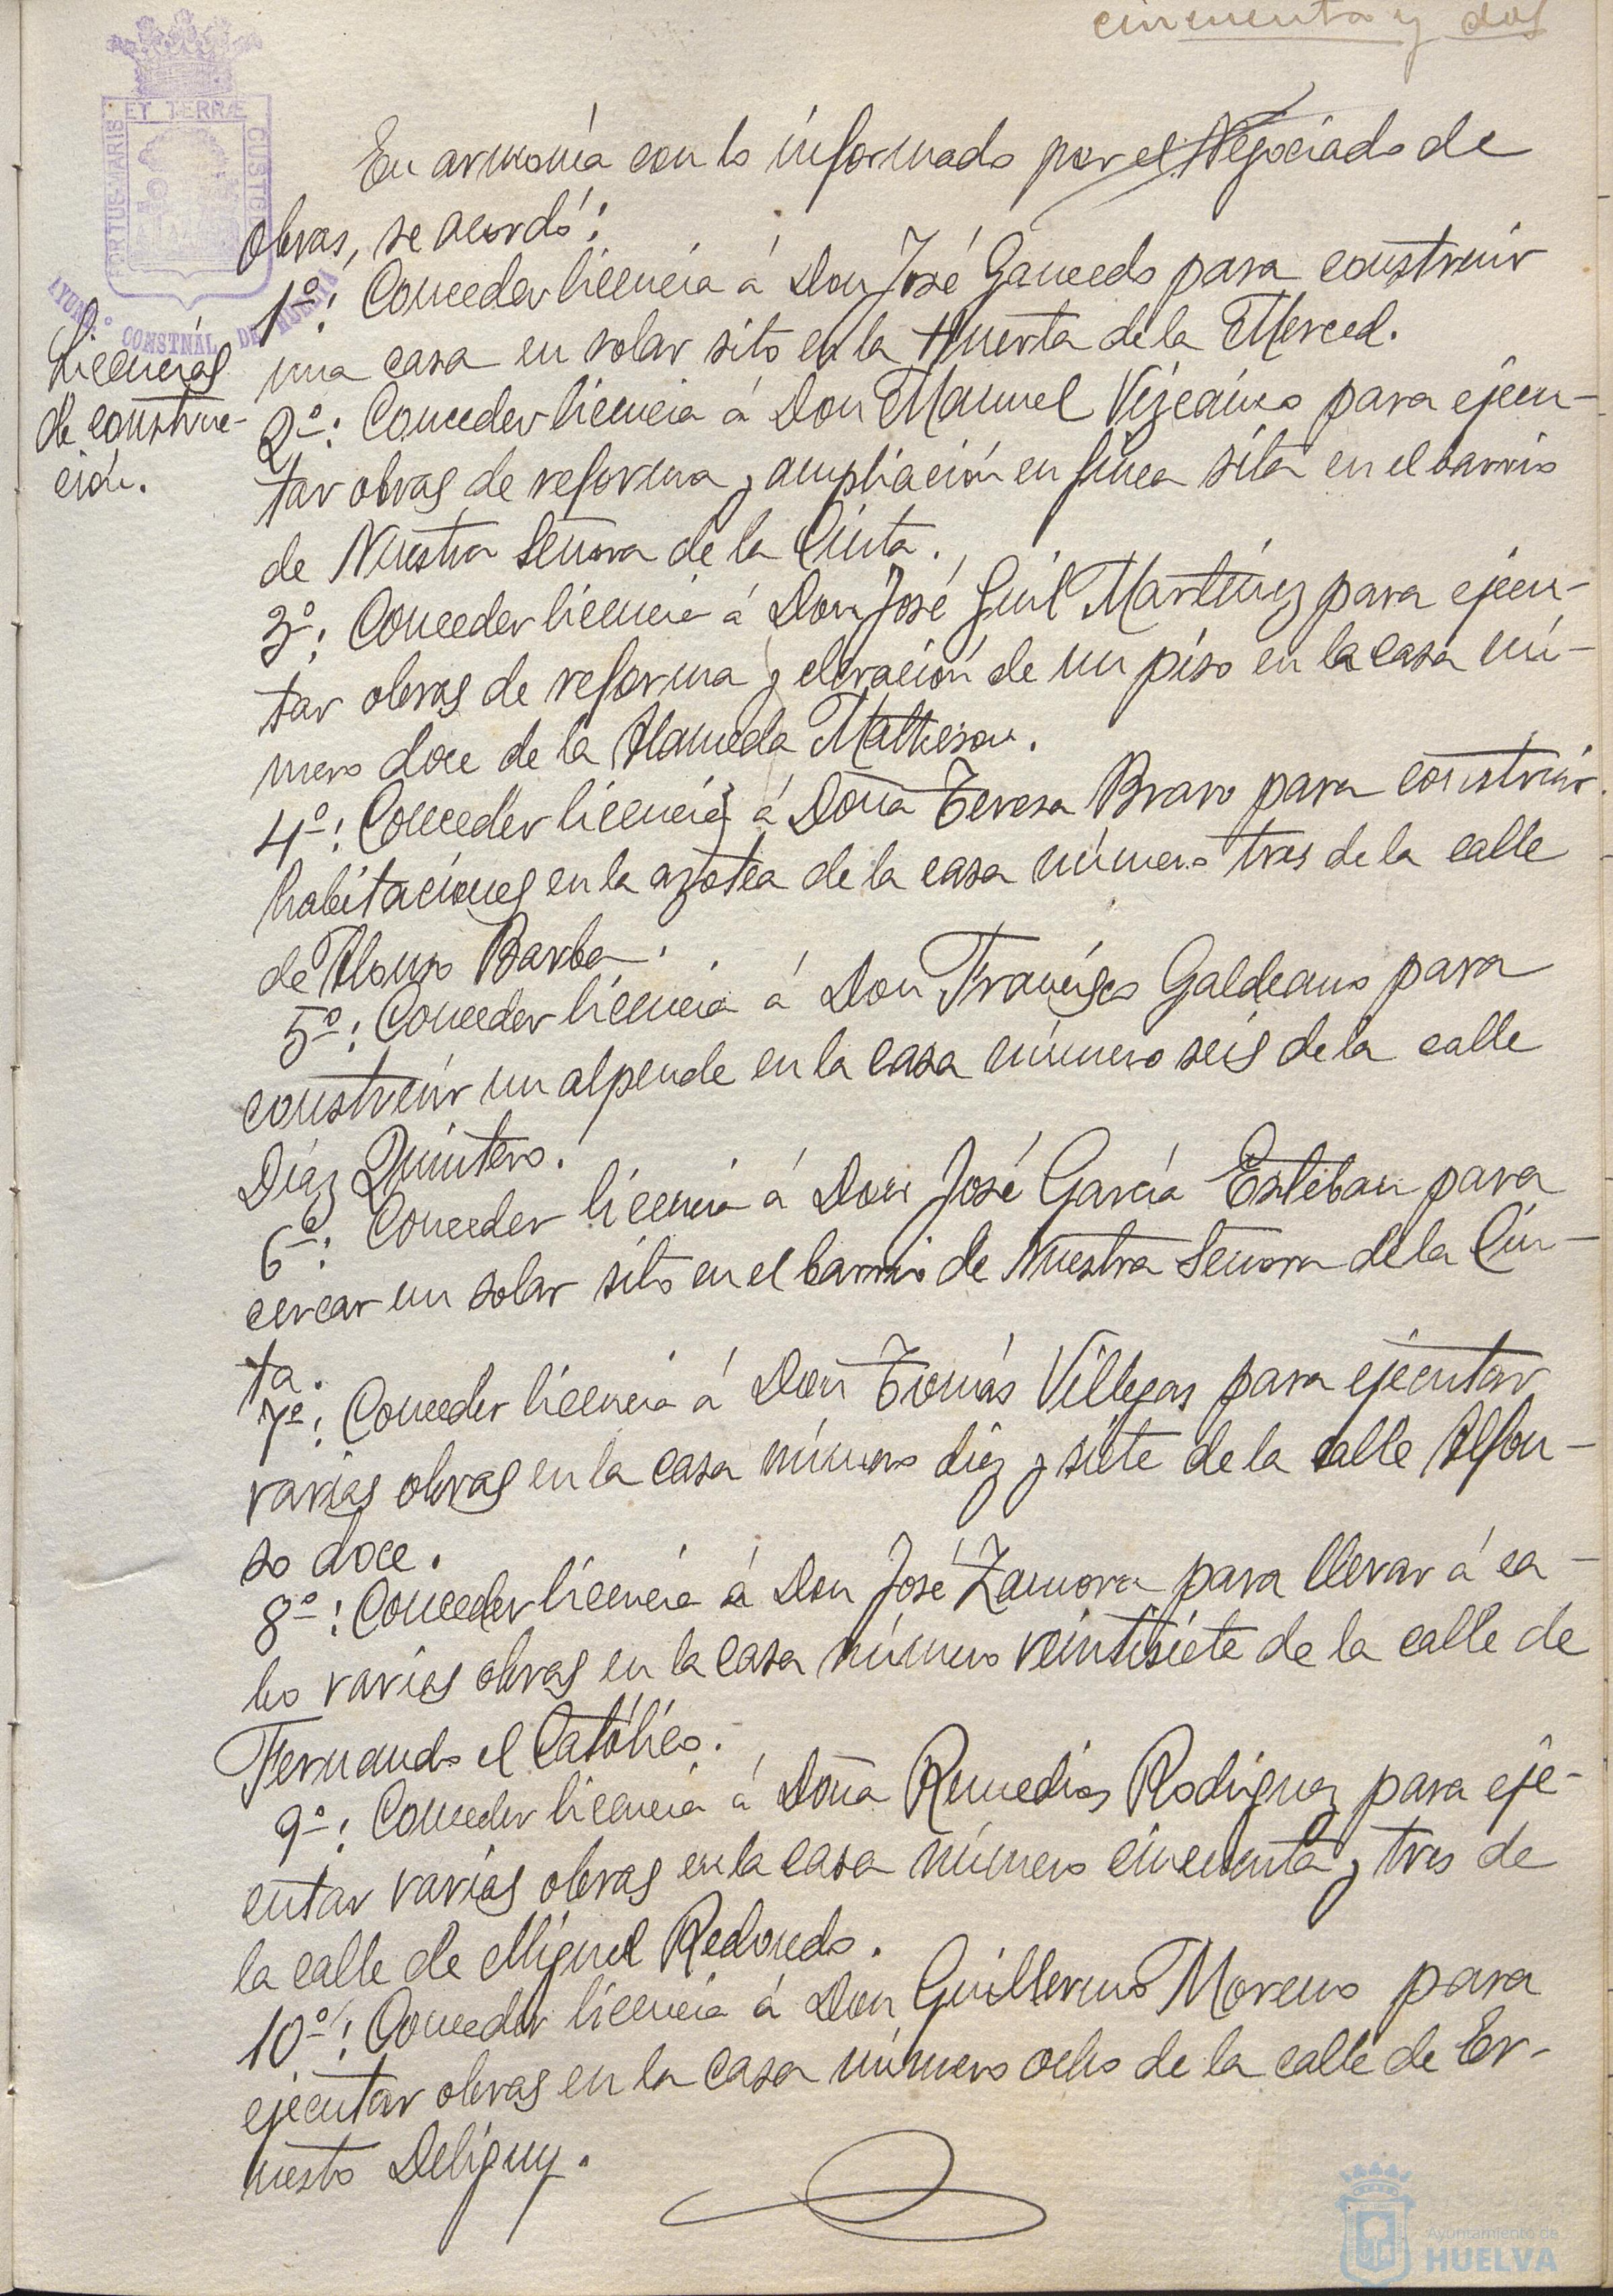 cincuenta y dos
ET TERRÆ
PORTUS MARIS
CUSTO
AYUNTº CONSTNAL DE HUELVA
Licencias
de construc-
ción.
En armonía con lo informado por el Negociado de
obras, se acordó:
1º: Conceder licencia á Don José Gancedo para construir
una casa en solar sito en la Huerta de la Merced.
2º: Conceder licencia á Don Manuel Vizcaino para ejecu-
tar obras de reforma y ampliación en finca sita en el barrio
de Nuestra Señora de la Cinta.
3º: Conceder licencia á Don José Guil Martínez para ejecu-
tar obras de reforma y elevación de un piso en la casa nú-
mero doce de la Alameda Matheson.
4º: Conceder licencia á Doña Teresa Bravo para construir
habitaciones en la azotea de la casa número tres de la calle
de Alonso Barba.
5º: Conceder licencia á Don Francisco Galdeano para
construir un alpende en la casa número seis de la calle
Díaz Quintero.
6º: Conceder licencia á Don José García Esteban para
cercar un solar sito en el barrio de Nuestra Señora de la Cin-
ta.
7º: Conceder licencia á Don Tomás Villegas para ejecutar
varias obras en la casa número diez y siete de la calle Alfon-
so doce.
8º: Conceder licencia á Don José Zamora para llevar á ca-
bo varias obras en la casa número veintisiete de la calle de
Fernando el Católico.
9º: Conceder licencia á Doña Remedios Rodriguez para eje-
cutar varias obras en la casa número cincuenta y tres de
la calle de Miguel Redondo.
10º: Conceder licencia á Don Guillermo Moreno para
ejecutar obras en la casa número ocho de la calle de Er-
nesto Deligny.
Ayuntamiento de
HUELVA